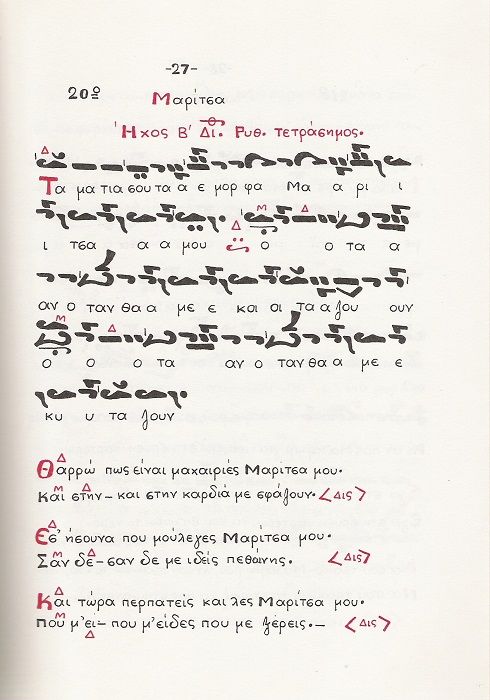 -27-
20º Μαρίτσα
Ήχος Β' Δι. Ρυθ. τετράσημος.
Τα μα τια σου τα α ε μορ φα Μα α ρι ι
ι τσα α α μου ο ο τα α
αν ο ταν θα α με ε και οι τα α ζου ουν
ο ο ο τα αν ο ταν θα α με ε
κυ υ τα ζουν
Θαρρώ πως είναι μαχαιριές Μαρίτσα μου.
Και στην - και στην καρδιά με σφάζουν. <Δις>
Εσ' ήσουνα που μούλεγες Μαρίτσα μου.
Σαν δε - σαν δε με ιδείς πεθαίνης. <Δις>
Και τώρα περπατείς και λες Μαρίτσα μου.
Που μ'ει - που μ'είδες που με ξέρεις. - <Δις>